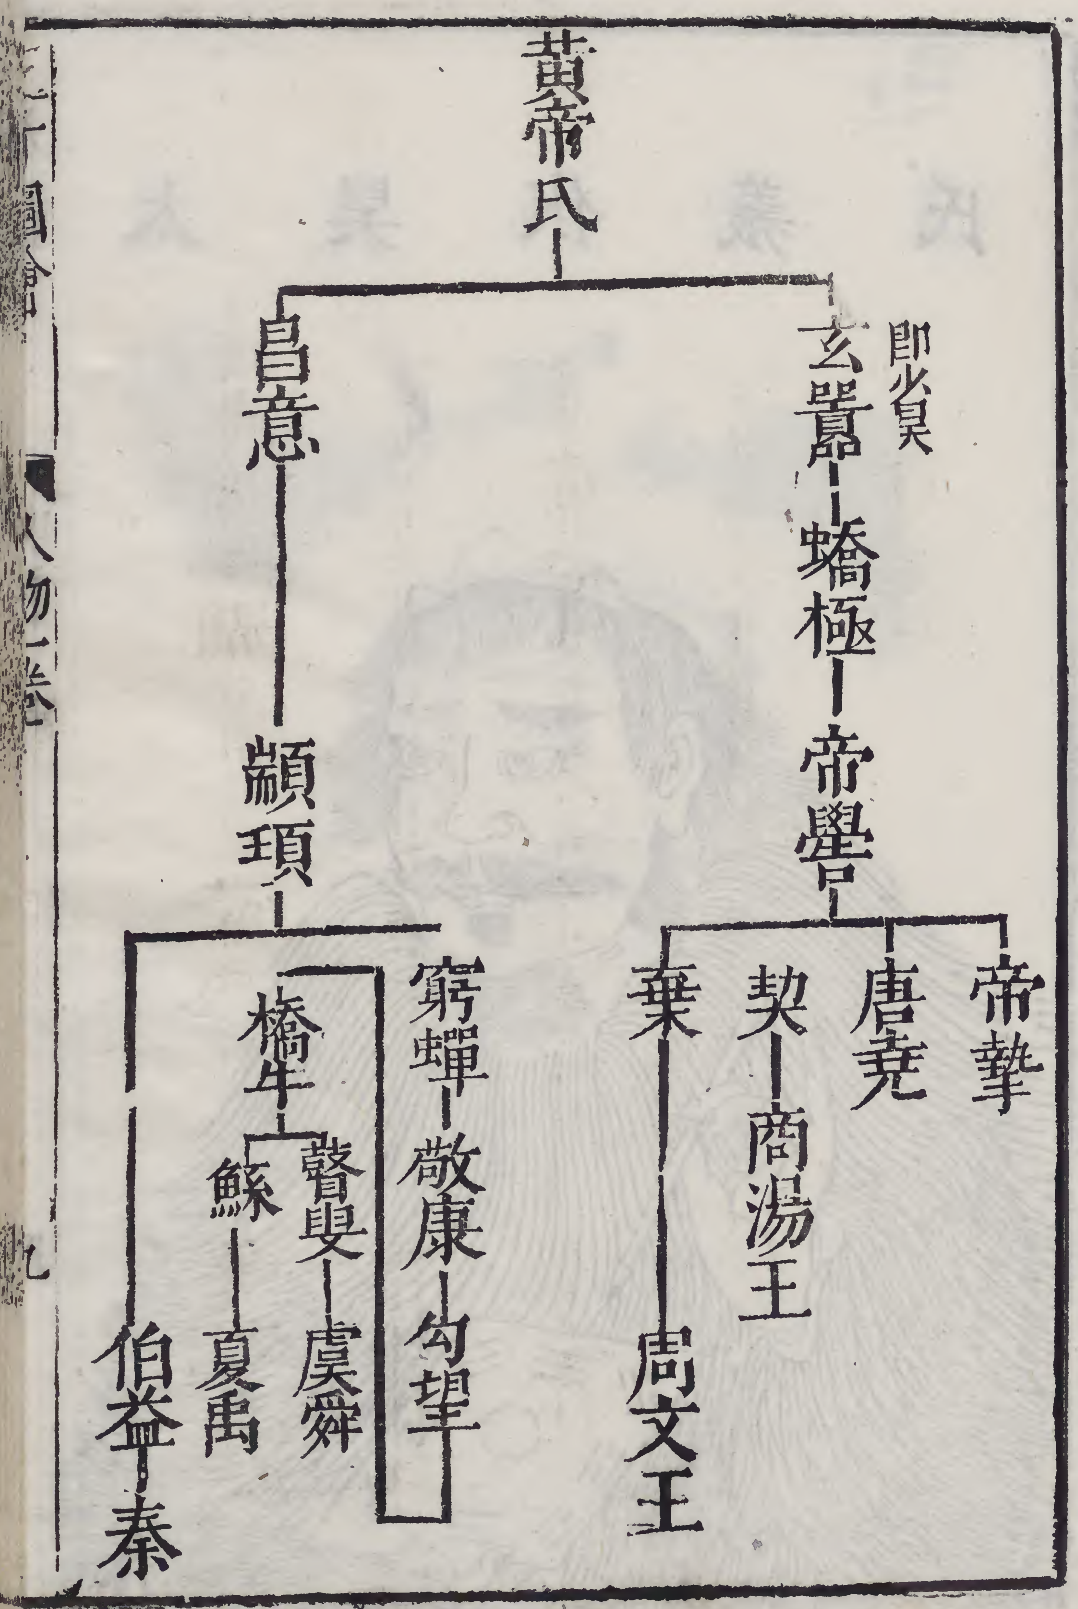 黃帝氏
玄囂
即少昊
蟜極
帝嚳
帝摯
唐堯
契
商湯王
棄
周文王
昌意
顓頊
窮蟬
敬康
勾望
橋牛
瞽叟
虞舜
鯀
夏禹
伯益
秦
圖會
人物一卷
九